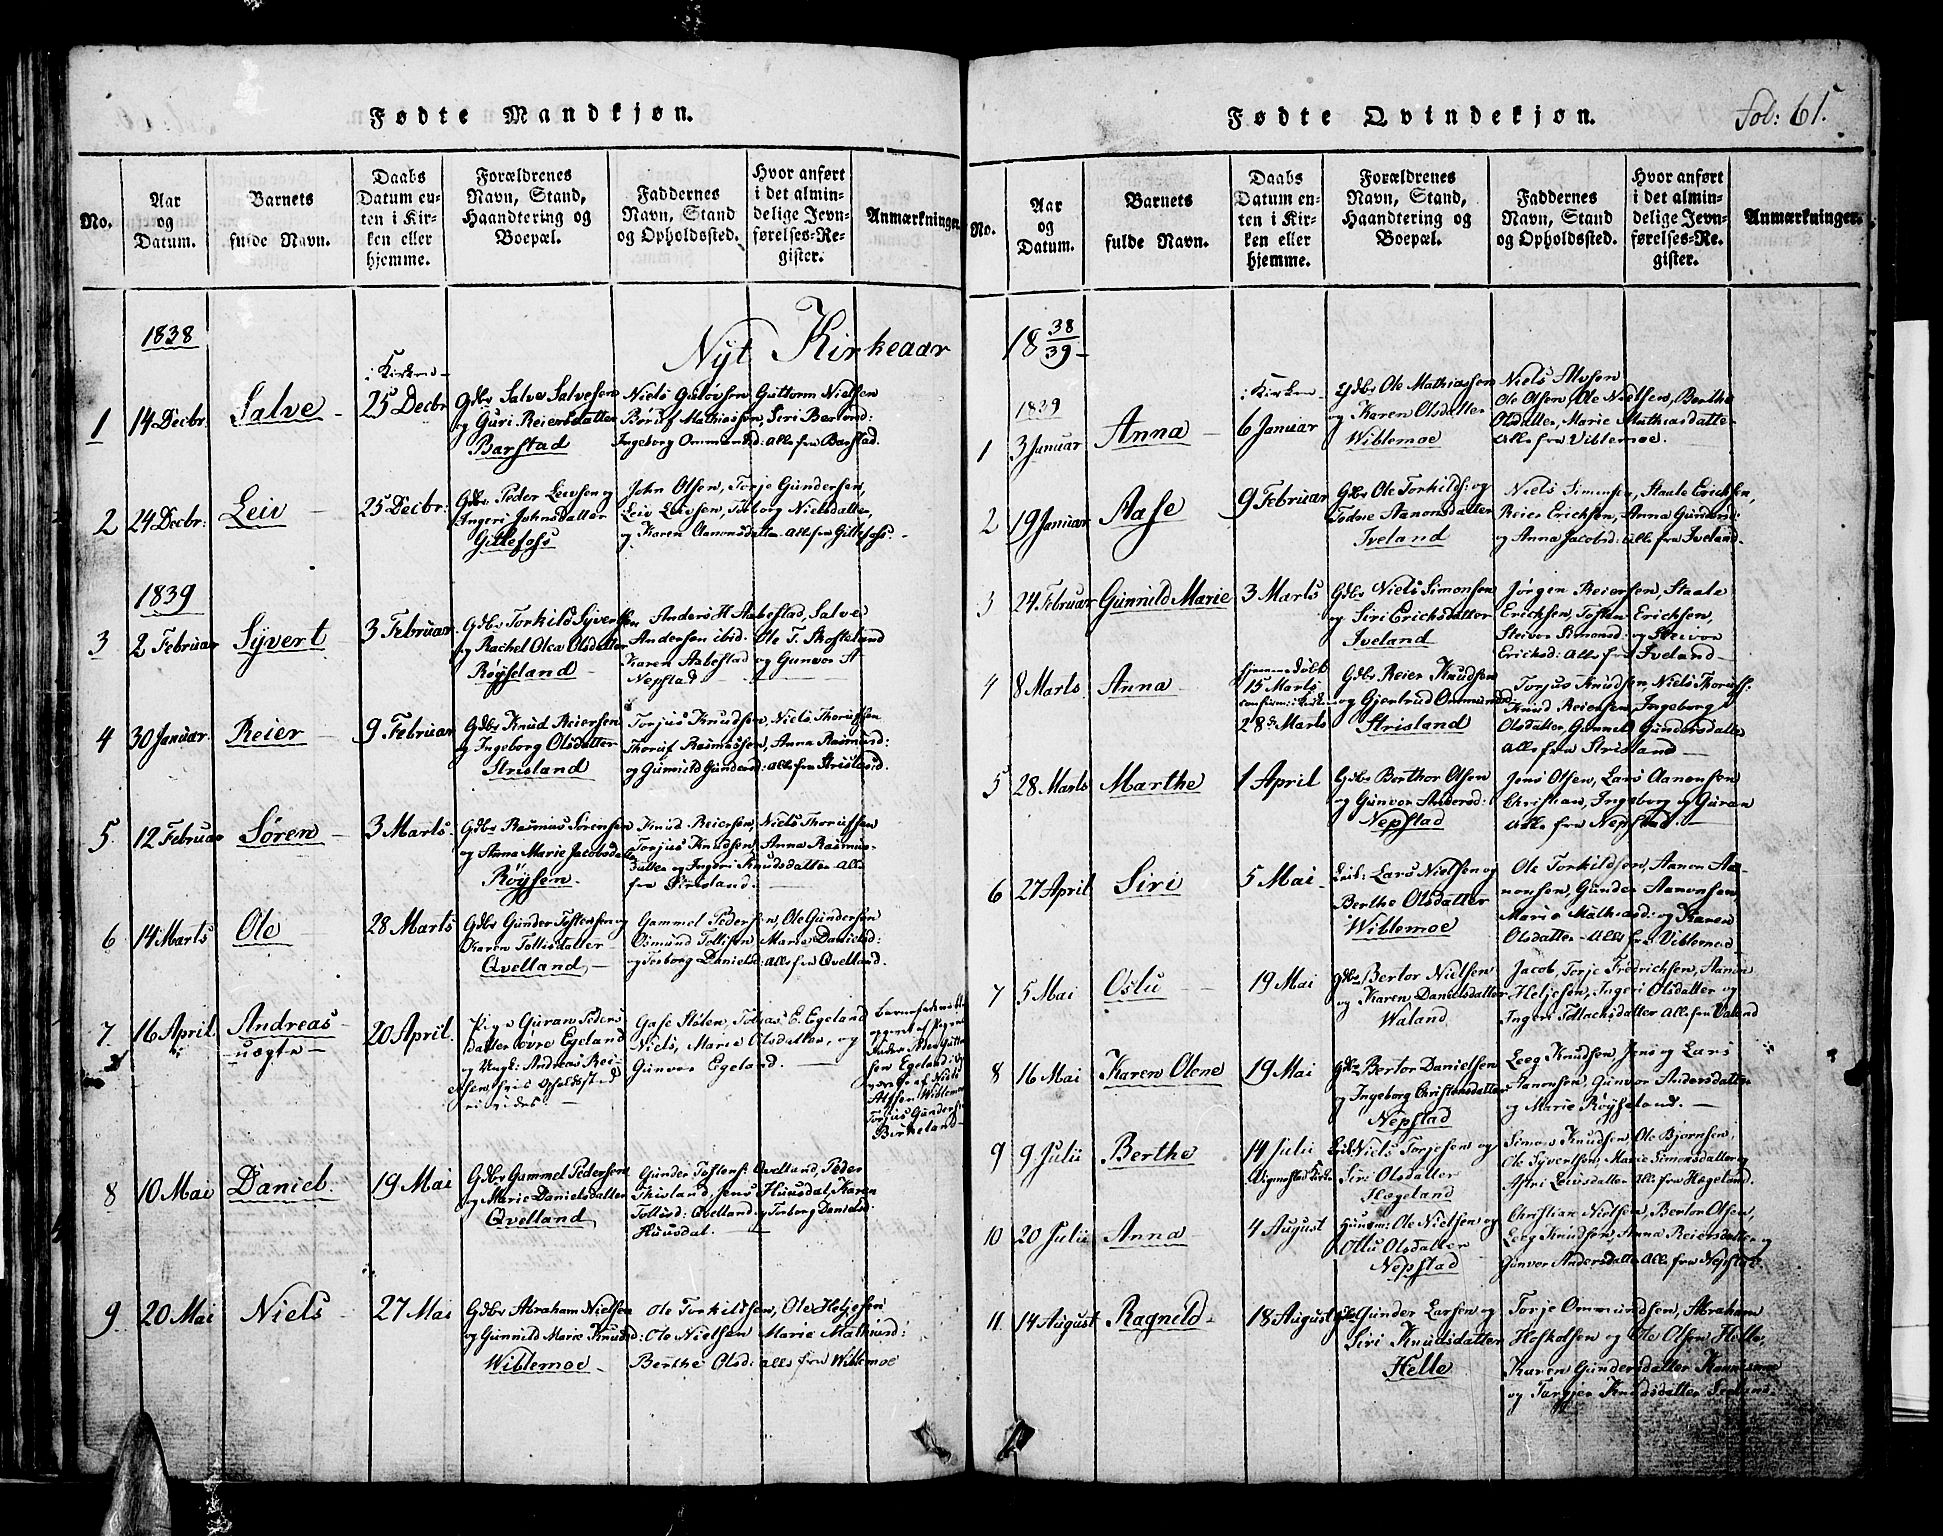 Fødte Mandkjøn.
No.
Aar og Datum.
Barnets fulde Navn.
Daabs Datum enten i Kirken eller hjemme.
Forældrenes Navn, Stand, Haandtering og Boepæl.
Faddernes Navn, Stand og Opholdssted.
Hvor anført i det almindelige Jevnførelses-Register.
Anmærkninger.
1838
Nyt Kirkeaar
1
14 Decbr.
Salve
i Kirken
25 Decbr
Gdbr Salve Salvesen
og Guri Reiersdatter
Barstad
Niels Guttorm Nielsen
Mathiassen, Siri
Ingeborg alle fra Barstad.
2
24 Decbr:
Leiv
25 Decbr:
Gdbr Peder Leivsen og
Ingeri Johnsdatter
Gillefoss
John Olsen, Torje Gundersen,
Leiv Leivsen, Torborg Nielsdatter,
og Karen Aanonsdatter alle fra Gillefoss.
1839
3
2 Februar
Syvert
3 Februar
Gdbr Torkild Syvertsen
og Rachel Olea Olsdatter
Røysland
Anders Aabestad, Salve
Andersen ibid. Ole T. Skofteland
Karen Aabestad og Gunvor A
Nepstad
4
30 Januar
Reier
9 Februar
Gdbr Knud Reiersen
og Ingeborg Olsdatter
Strisland
Torjus Knudsen, Niels Thorufsen
Thoruf Rasmussen, Anna Rasmusd:
og Gunnild Gundersd: alle fra Strisland.
5
12 Februar
Søren
3 Marts
Gdbr Rasmus Sørensen
og Anna Marie Jacobsdatter
Røysen
Knud Reiersen, Niels Thorufsen
Torjus Knudsen, Anna Rasmus-
datter og Ingeri Knudsdatter alle
fra Strisland.
6
14 Marts
Ole
28 Marts
Gdbr Gunder Tostensen og
Karen Tollisdatter
Qvelland
Gammel Pedersen, Ole Gundersen
Osmund Tollisen Marie Danielsd:
og Torborg Danielsd: alle fra Qvelland.
7
16 April
Andreas
uægte
20 April.
Pige Guran Peders
datter øvre Egeland
og Ungk: Andreas Rei-
ersen, hvis Opholdsted
ei vides.
Gase Stølen, Tobias E. Egeland
Niels, Marie Olsdatter, og
Gunvor Egeland.
Barnefaderen
opgivet af Pigens
Fader Peder
Egeland
Niels
Wiblemoe
Torjus Gundersen
Birkeland
8
10 Mai
Daniel
19 Mai
Gdbr Gammel Pedersen
og Marie Danielsdatter
Qvelland
Gunder Tostens: Qvelland, Peder
Thisland, Jens Huusdal, Karen
Tollisd: Qvelland og Torborg Danielsd.
Huusdal.
9
20 Mai
Niels
27 Mai
Gdbr Abraham Nielsen
og Gunnild Marie Knudsd:
Wiblemoe
Ole Torkildsen, Ole Heljesen
Ole Nielsen Marie Mathiasd:
Berthe Olsd: alle fra Wiblemoe
Fødte Qvindekjøn.
Fol: 61.
No.
Aar og Datum.
Barnets fulde Navn.
Daabs Datum enten i Kirken eller hjemme.
Forældrenes Navn, Stand, Haandtering og Boepæl.
Faddernes Navn, Stand og Opholdssted.
Hvor anført i det almindelige Jevnførelses-Register.
Anmærkninger.
18 38/39
1839
1
3 Januar
Anna
i Kirken
6 Januar
Gdbr Ole Mathiassen
og Karen Olsdatter
Wiblemoe
Niels Alvsen
Ole Olsen, Ole Nielsen, Berthe
Olsdatter, Marie Mathiasdatter
alle fra Viblemoe.
2
19 Januar
Aase
9 Februar
Gdbr Ole Torkilds: og
Todne Aanonsdatter
Iveland
Niels Simonsen, Staale Erichsen,
Reier Erichsen, Anna Gundersd:
og Anna Jacobsd: alle fra Iveland.
3
24 Februar
Gunnild Marie
3 Marts
Gdbr Niels Simonsen
og Siri Erichsdatter
Iveland
Jørgen Reiersen, Staale
Erichsen, Tosten Erichsen,
Steivor Simonsd: og Steivor
Ericksd: alle fra Iveland
4
8 Marts
Anna
hjemmedøbt
15 Marts
confirm: i Kirken
28de Marts
Gdbr Reier Knudsen
og Gjertrud Ommunds
Strisland
Torjus Knudsen, Niels Thorufs:
Knud Reiersen, Ingeborg
Olsdatter, Gunnild Gundersdatter
alle fra Strisland
5
28 Marts
Marthe
1 April
Gdbr Berthor Olsen
og Gunvor Andersd:
Nepstad
Jens Olsen, Lars Aanonsen
Christian, Ingeborg og Guran
alle fra Nepstad.
6
27 April
Siri
5 Mai
Leil: Lars Nielsen og
Berthe Olsdatter
Wiblemoe
Ole Torkildsen, Aanon Aa-
nonsen, Gunder Aanonsen,
Marie Mathiasd: og Karen
Olsdatter alle fra Viblemoe
7
5 Mai
Oslu
19 Mai
Gdbr Bertor Nielsen
og Karen Danielsdatter
Waland
Jacob, Torje Fredrichsen, Aanon
Heljesen, Ingeri Olsdatter og
Inger Tollachsdatter alle fra Valand
8
16 Mai
Karen Olene
19 Mai
Gdbr Bertor Danielsen
og Ingeborg Christensdatter
Nepstad
Leeg Knudsen, Jens og Lars
Aanonsen, Gunvor Andersdatter
og Marie Røyseland.
9
9 Julii
Berthe
14 Julii
Vignestad Kirke
Leil: Niels Torjesen og
Siri Olsdatter
Hægeland
Simon Knudsen, Ole Bjornsen,
Ole Syvertsen, Marie Simonsdatter og
Astri Leivsdatter alle fra Hægeland.
10
20 Julii
Anna
4 August
Huusm: Ole Nielsen og
Ollu Olsdatter
Nepstad
Christian Nielsen, Bertor Olsen,
Leeg Knudsen, Anna Reiersdatter og
Gunvor Andersdatter alle fra Nepstad.
11
14 August
Ragnild
18 August
Gdbr Gunder Larsen og
Siri Knudsdatter
Helle
Torje Ommundsen, Abraham
Hoskolsen og Ole Olsen Helle,
Karen Gundersdatter
og Targjer Knudsdatter